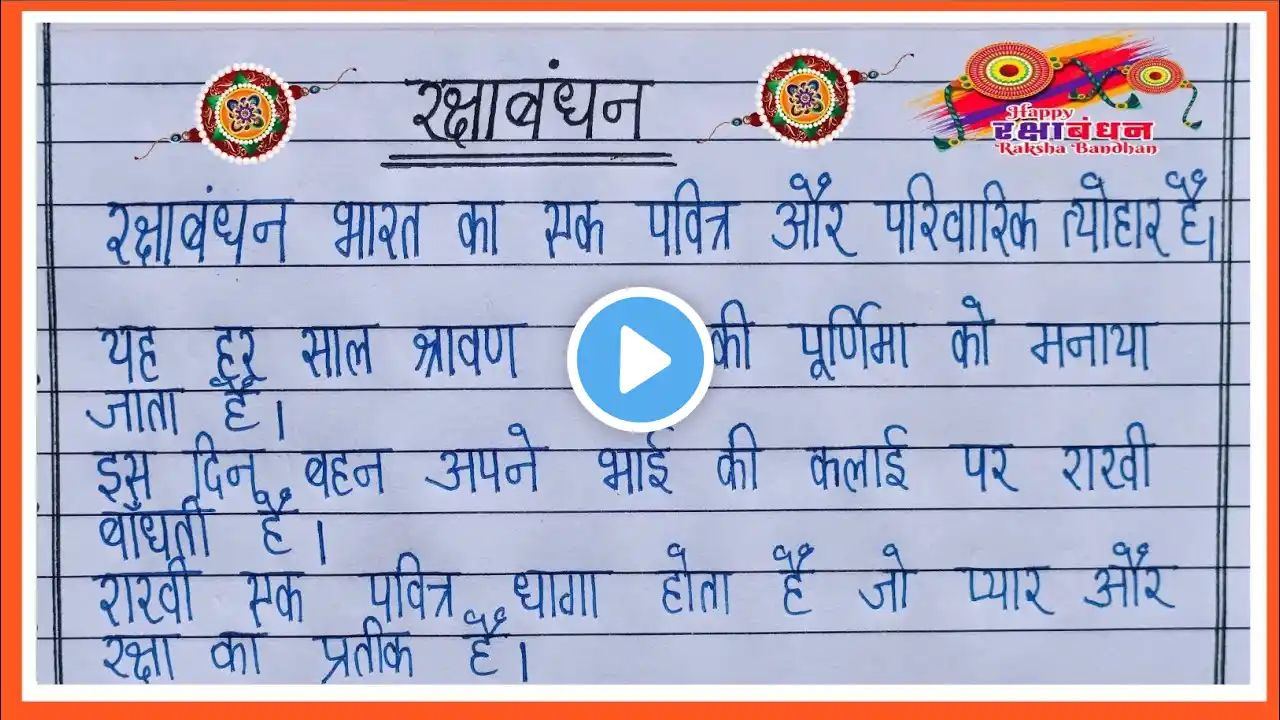 रक्षाबंधन
Happy
रक्षाबंधन
Raksha Bandhan
रक्षाबंधन भारत का एक पवित्र और परिवारिक त्योहार है।
यह हर साल श्रावण की पूर्णिमा को मनाया
जाता है।
इस दिन बहन अपने भाई की कलाई पर राखी
बाँधती है।
राखी एक पवित्र धागा होता है जो प्यार और
रक्षा का प्रतीक है।